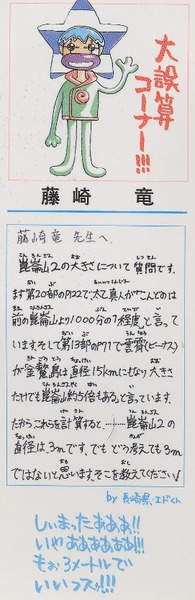 大誤算
コーナー!!!
藤崎 竜
藤崎竜 先生へ
崑崙山2の大きさについて質問です。
まず第20部のP122で太乙真人がこんどのは
前の崑崙山より1000分の1程度と言って
います。そして第13部のP71で雲霄(ビーナス)
が金鰲島は直径15kmにもなり大きさ
だけでも崑崙山の約5倍もあると言っています。
だからこれらを計算すると……崑崙山2の
直径は、3mです。でも どう考えても3m
ではないと思います。そこを教えてください√
by 長崎県・エドくん
しぃまったあああ!!
いやああああああ!!!
もぉ3メートルで
いいっスッ!!!